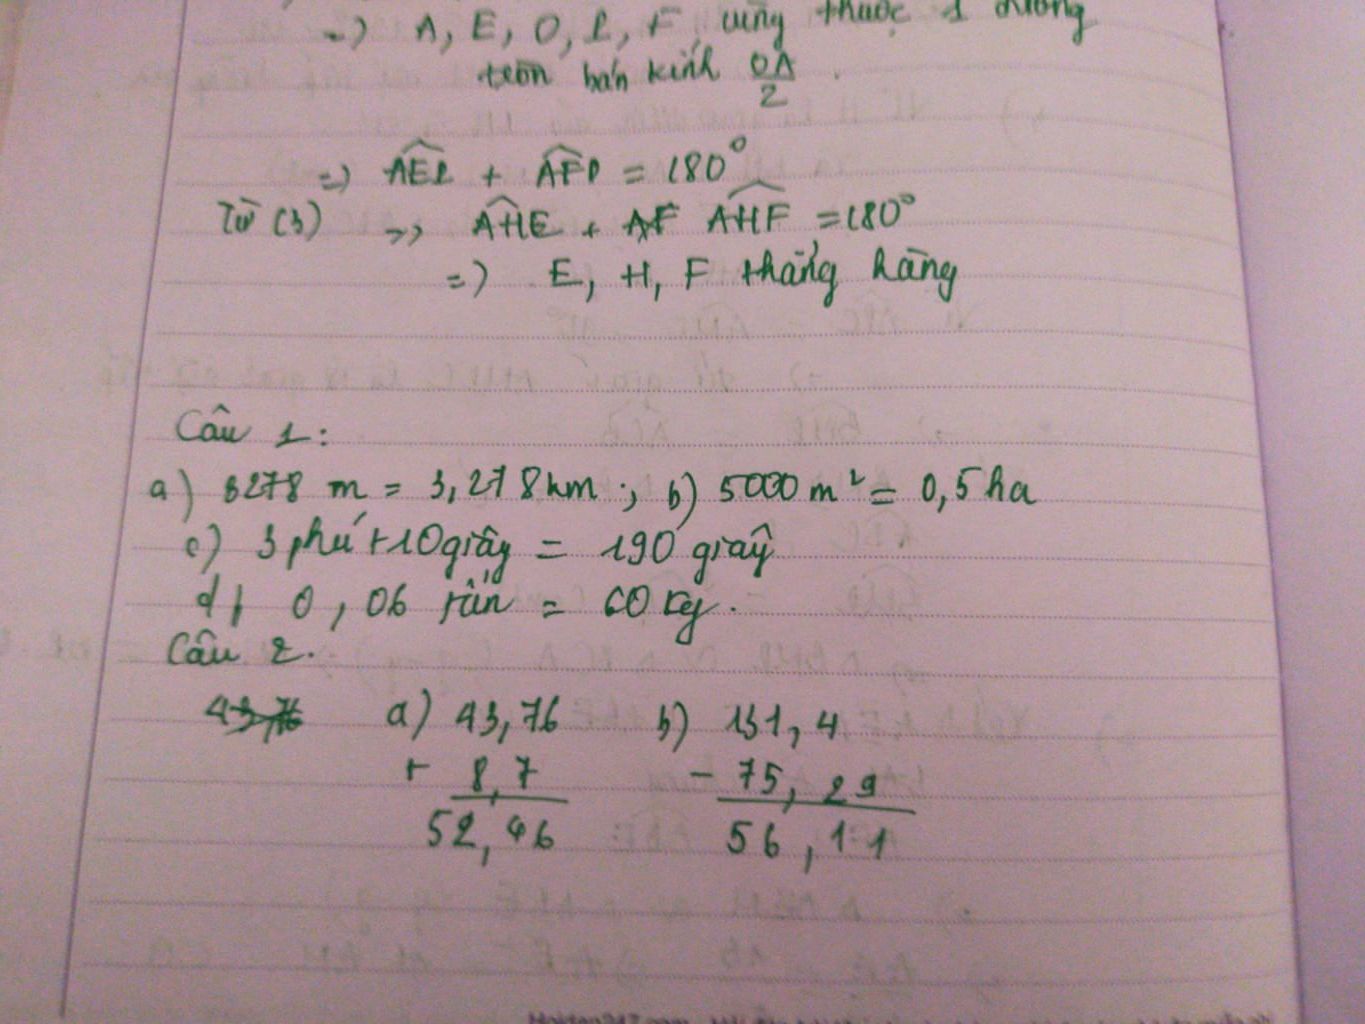 =) A, E, O, I, F cùng thuộc 1 đường
tròn bán kính OA/2.
=) AEI + AFI = 180°
Từ (3) =) AHE + AF AHF = 180°
=) E, H, F thẳng hàng
Câu 1:
a) 3278 m = 3,278 km; b) 5000 m² = 0,5 ha
c) 3 phút 10 giây = 190 giây
d) 0,06 tấn = 60 kg.
Câu 2.
43,76 a) 43,76 b) 131,4
+ 8,7 - 75,29
52,46 56,11